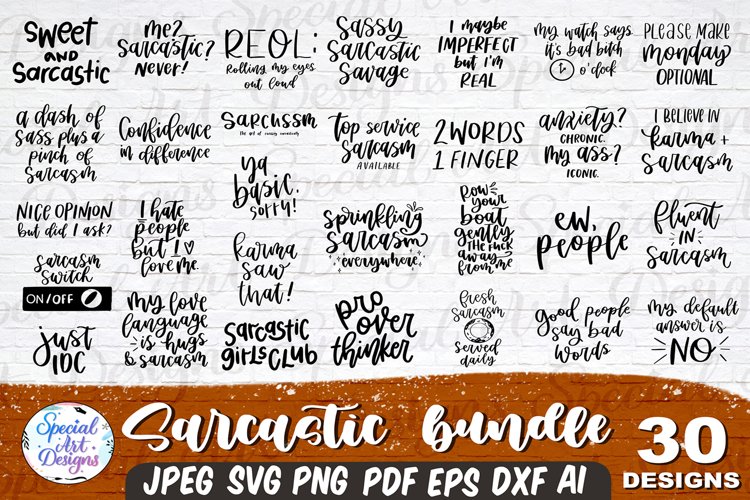 Sweet
AND
Sarcastic
Me?
Sarcastic?
Never!
REOL:
Rolling my eyes
out loud
Sassy
Sarcastic
Savage
I maybe
IMPERFECT
but i'm
REAL
my watch says
it's bad bitch
o'clock
PLEASE MAKE
monday
OPTIONAL
a dash of
sass plus a
pinch of
sarcasm
Confidence
in difference
Sarcussm
top service
sarcasm
AVAILABLE
2 WORDS
1 FINGER
anxiety?
CHRONIC.
my ass?
ICONIC.
I BELIEVE IN
karma +
sarcasm
ya
basic.
sorry!
NICE OPINION
but did I ask?
I hate
people
but I
love me.
karma
saw
that!
sprinkling
sarcasm
everywhere
row
your
boat
gently
THE FUCK
away
from me
ew,
people
fluent
IN
sarcasm
sarcasm
switch
ON/OFF
just
IDC
my love
language
is hugs
& sarcasm
Sarcastic
girls club
pro
over
thinker
fresh
sarcasm
served
daily
good people
say bad
words
my default
answer is
NO
Special
Art
Designs
Sarcastic bundle
30
DESIGNS
JPEG SVG PNG PDF EPS DXF AI